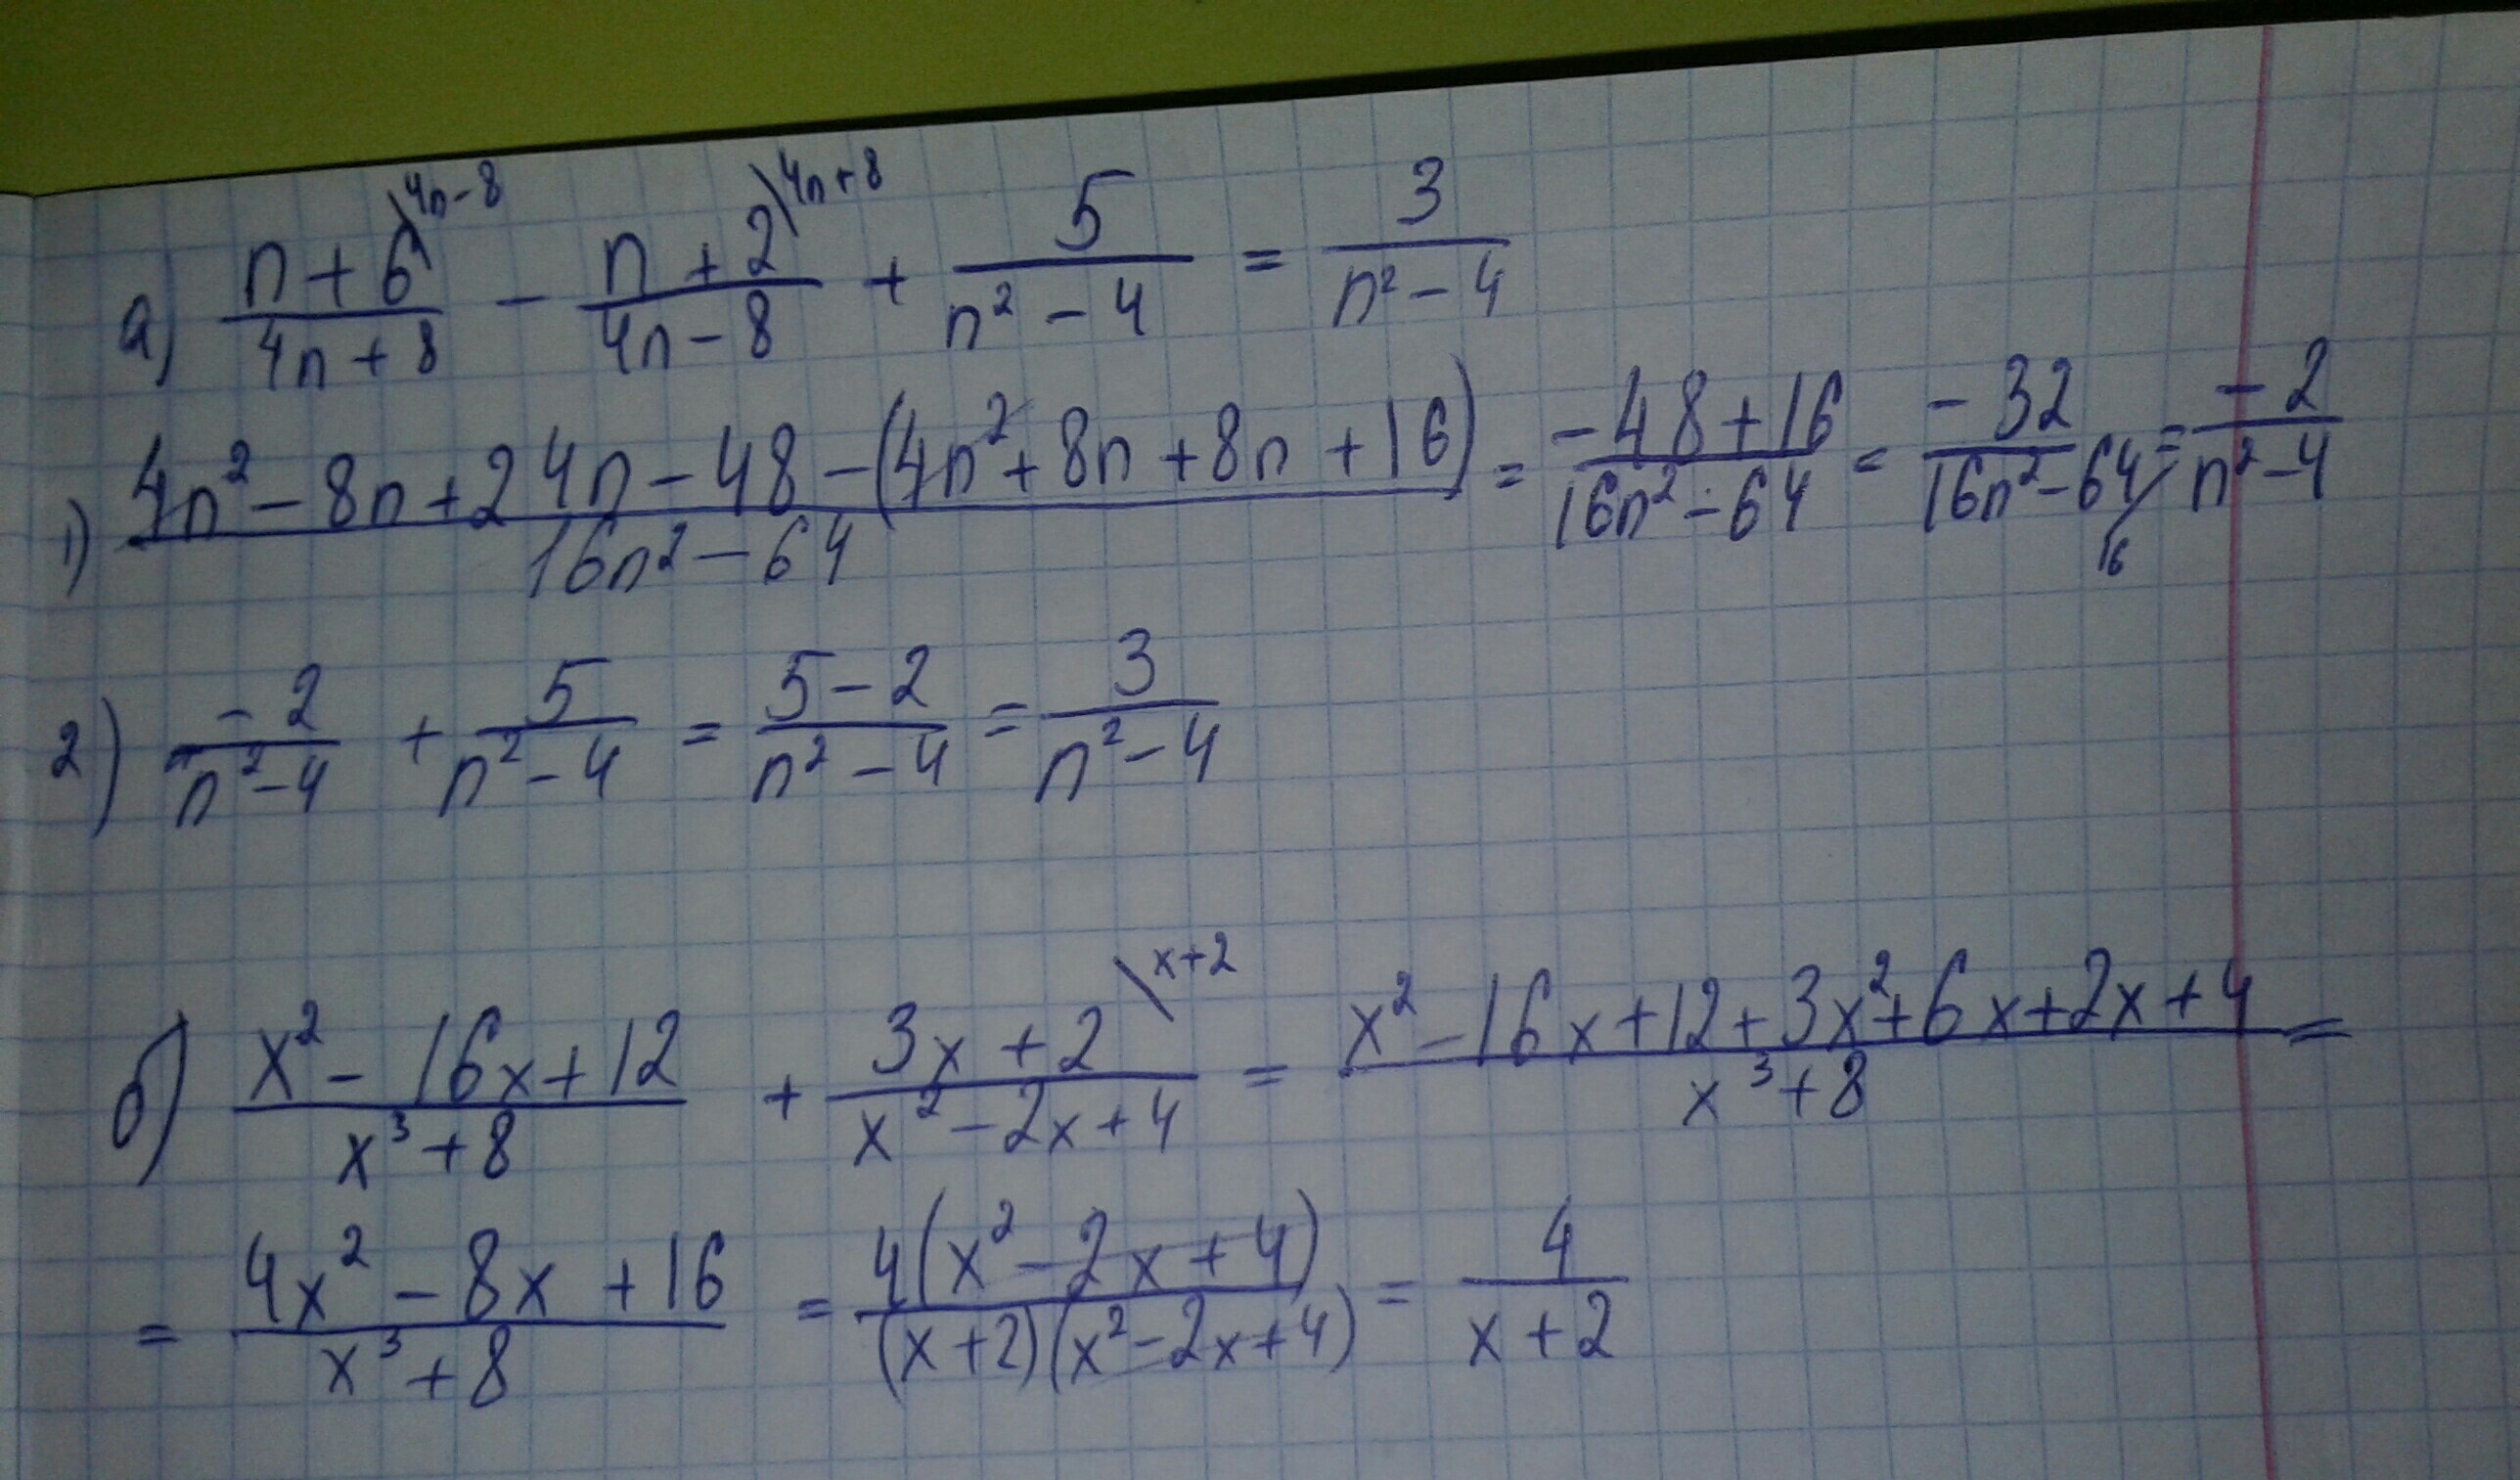 а) (n+6)/(4n+8) \4n-8 - (n+2)/(4n-8) \4n+8 + 5/(n² - 4) = 3/(n² - 4)
1) (4n² - 8n + 24n - 48 - (4n² + 8n + 8n + 16))/(16n² - 64) = (-48 + 16)/(16n² - 64) = (-32)/(16n² - 64) /16 = (-2)/(n² - 4)
2) (-2)/(n² - 4) + 5/(n² - 4) = (5 - 2)/(n² - 4) = 3/(n² - 4)
б) (x² - 16x + 12)/(x³ + 8) + (3x + 2)/(x² - 2x + 4) \x+2 = (x² - 16x + 12 + 3x² + 6x + 2x + 4)/(x³ + 8) =
= (4x² - 8x + 16)/(x³ + 8) = (4(x² - 2x + 4))/((x + 2)(x² - 2x + 4)) = 4/(x + 2)